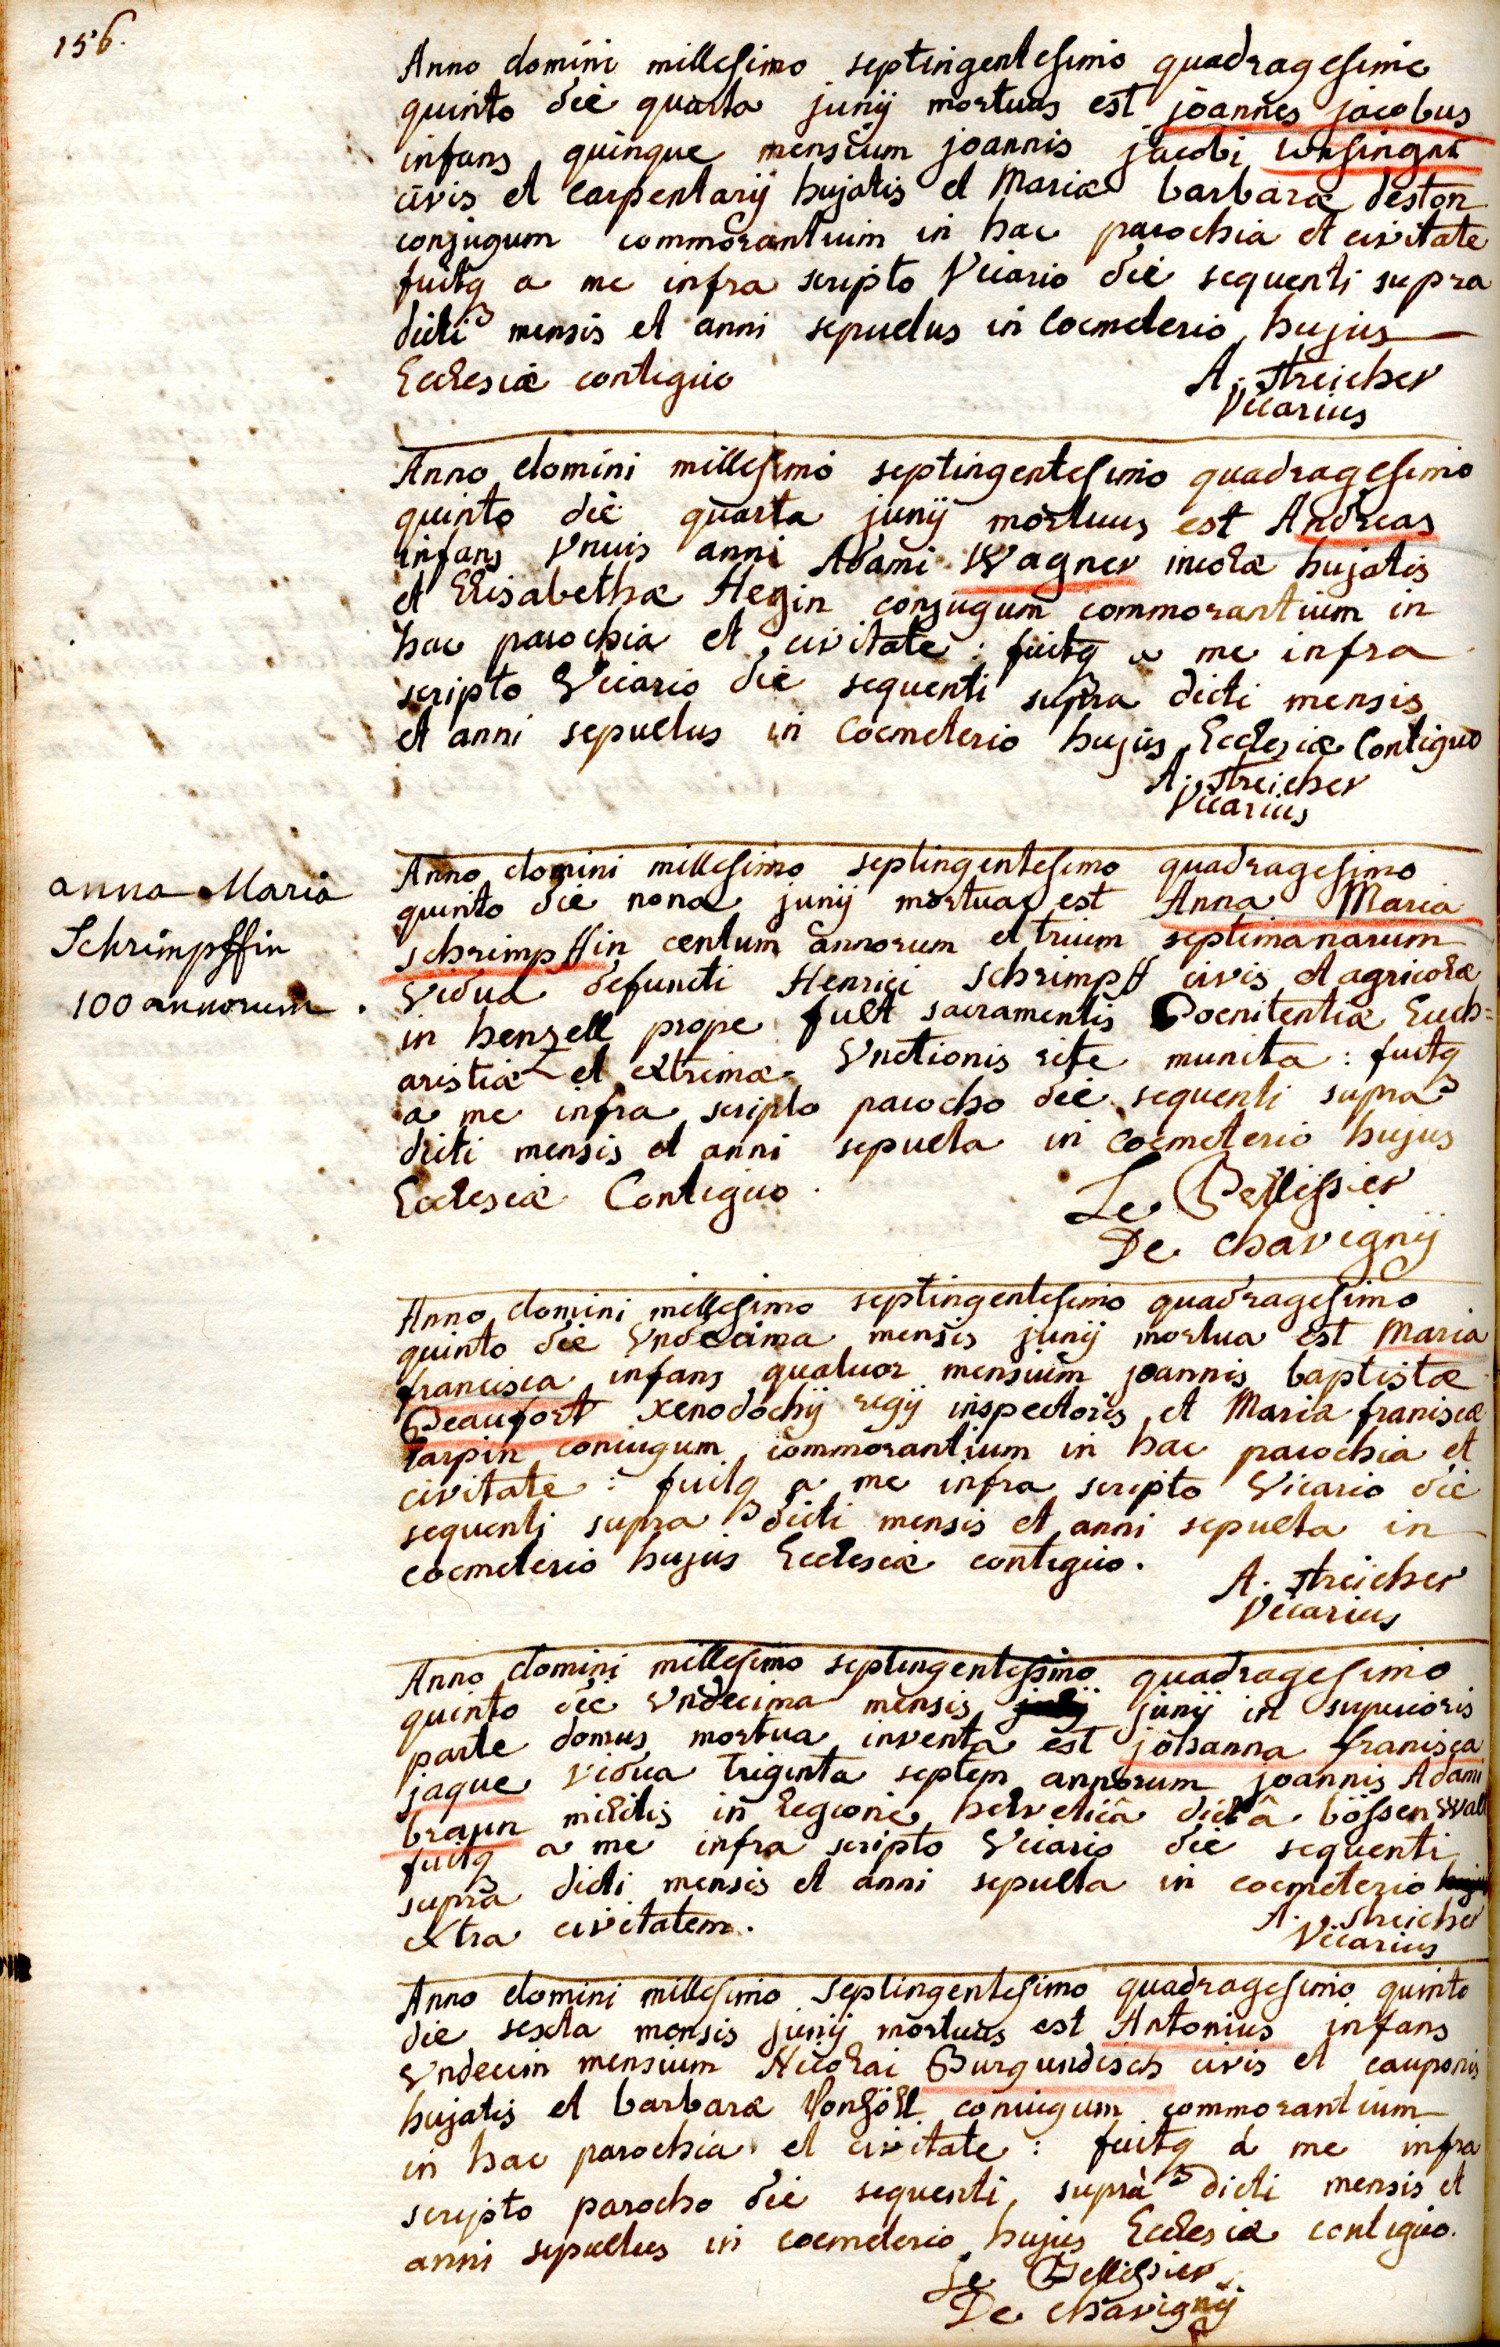 156.
Anno domini millesimo septingentesimo quadragesimo
quinto die quarta junij mortuus est joannes jacobus
infans quinque mensium joannis jacobi
civis et carpentarij hujatis et Mariæ barbaræ deston
conjugum commorantium in hac parochia et civitate
fuitq a me infra scripto Vicario die sequenti supra
dicti mensis et anni sepultus in Coemeterio hujus
Ecclesiæ contiguo
A. Streicher
Vicarius
Anno domini millesimo septingentesimo quadragesimo
quinto die quarta junij mortuus est Andreas
infans Vnius anni Adami Wagner incolæ hujatis
et Elisabethæ Hegin conjugum commorantium in
hac parochia et civitate : fuitq a me infra
scripto Vicario die sequenti supra dicti mensis
et anni sepultus in Coemeterio hujus Ecclesiæ Contiguo
A. Streicher
Vicarius
anna Maria
Schrimpffin
100 annorum.
Anno domini millesimo septingentesimo quadragesimo
quinto die nona junij mortua est Anna Maria
schrimpffin centum annorum et trium septimanarum
Vidua defuncti Henrici schrimpff civis et agricolæ
in henzell prope fult sacramentis Poenitentiæ Euch=
aristiæ et extrimæ Vnctionis rite munita : fuitq
a me infra scripto parocho die sequenti supra
dicti mensis et anni sepulta in coemeterio hujus
Ecclesiæ Contiguo .
Le Pellissier
De chavignij
Anno domini millesimo septingentesimo quadragesimo
quinto die Vndecima mensis junij mortua est Maria
francisca infans quatuor mensium joannis baptistæ
Beaufort xenodochij regij inspectoris et Mariæ franiscæ
Tarpin coniugum commorantium in hac parochia et
civitate : fuitq a me infra scripto Vicario die
sequenti supra dicti mensis et anni sepulta in
coemeterio hujus Ecclesiæ contiguo.
A. Streicher
Vicarius
Anno domini millesimo septingentesimo quadragesimo
quinto die Vndecima mensis junij in superioris
parte domus mortua inventa est johanna franisca
jaque vidua triginta septem annorum joannis Adami
braun militis in legione helveticâ dictâ bössenwald
fuitq a me infra scripto Vicario die sequenti
supra dicti mensis et anni sepulta in coemeterio
extra civitatem.
A. Streicher
Vicarius
Anno domini millesimo septingentesimo quadragesimo quinto
die sexta mensis junij mortuus est Antonius infans
Vndecim mensium Nicolai Burgundisch civis et cauponis
hujatis et barbaræ coniugum commorantium
in hac parochia et civitate : fuitq á me infra
scripto parocho die sequenti suprà dicti mensis et
anni sepultus in coemeterio hujus Ecclesiæ contiguo.
Le Pellissier
De chavignij